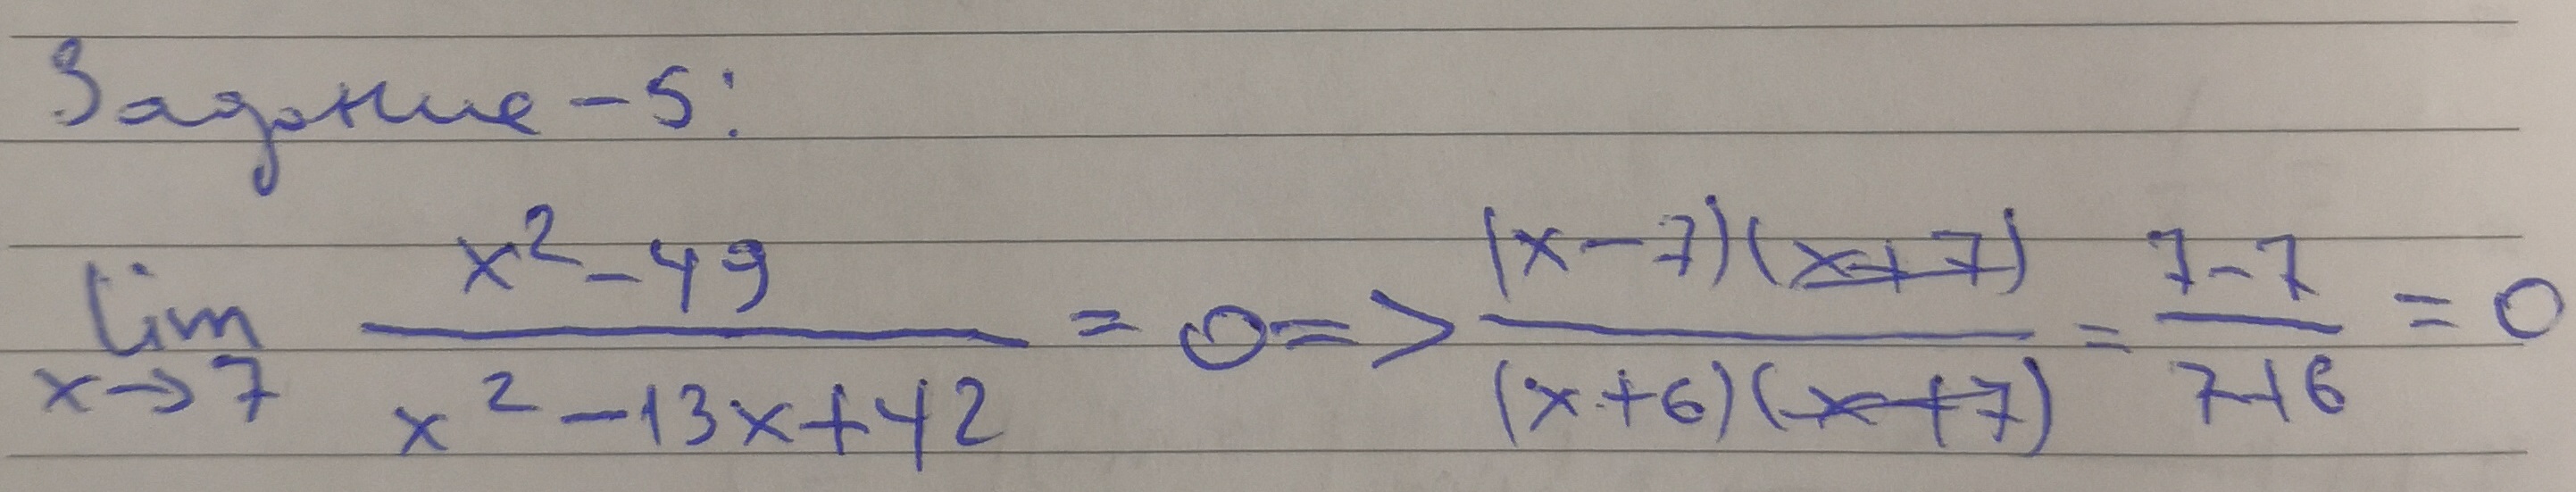 Задание - 5:
lim x→7 (x² - 49)/(x² - 13x + 42) = 0 => ((x - 7)(x + 7))/((x + 6)(x + 7)) = (7 - 7)/(7 + 6) = 0